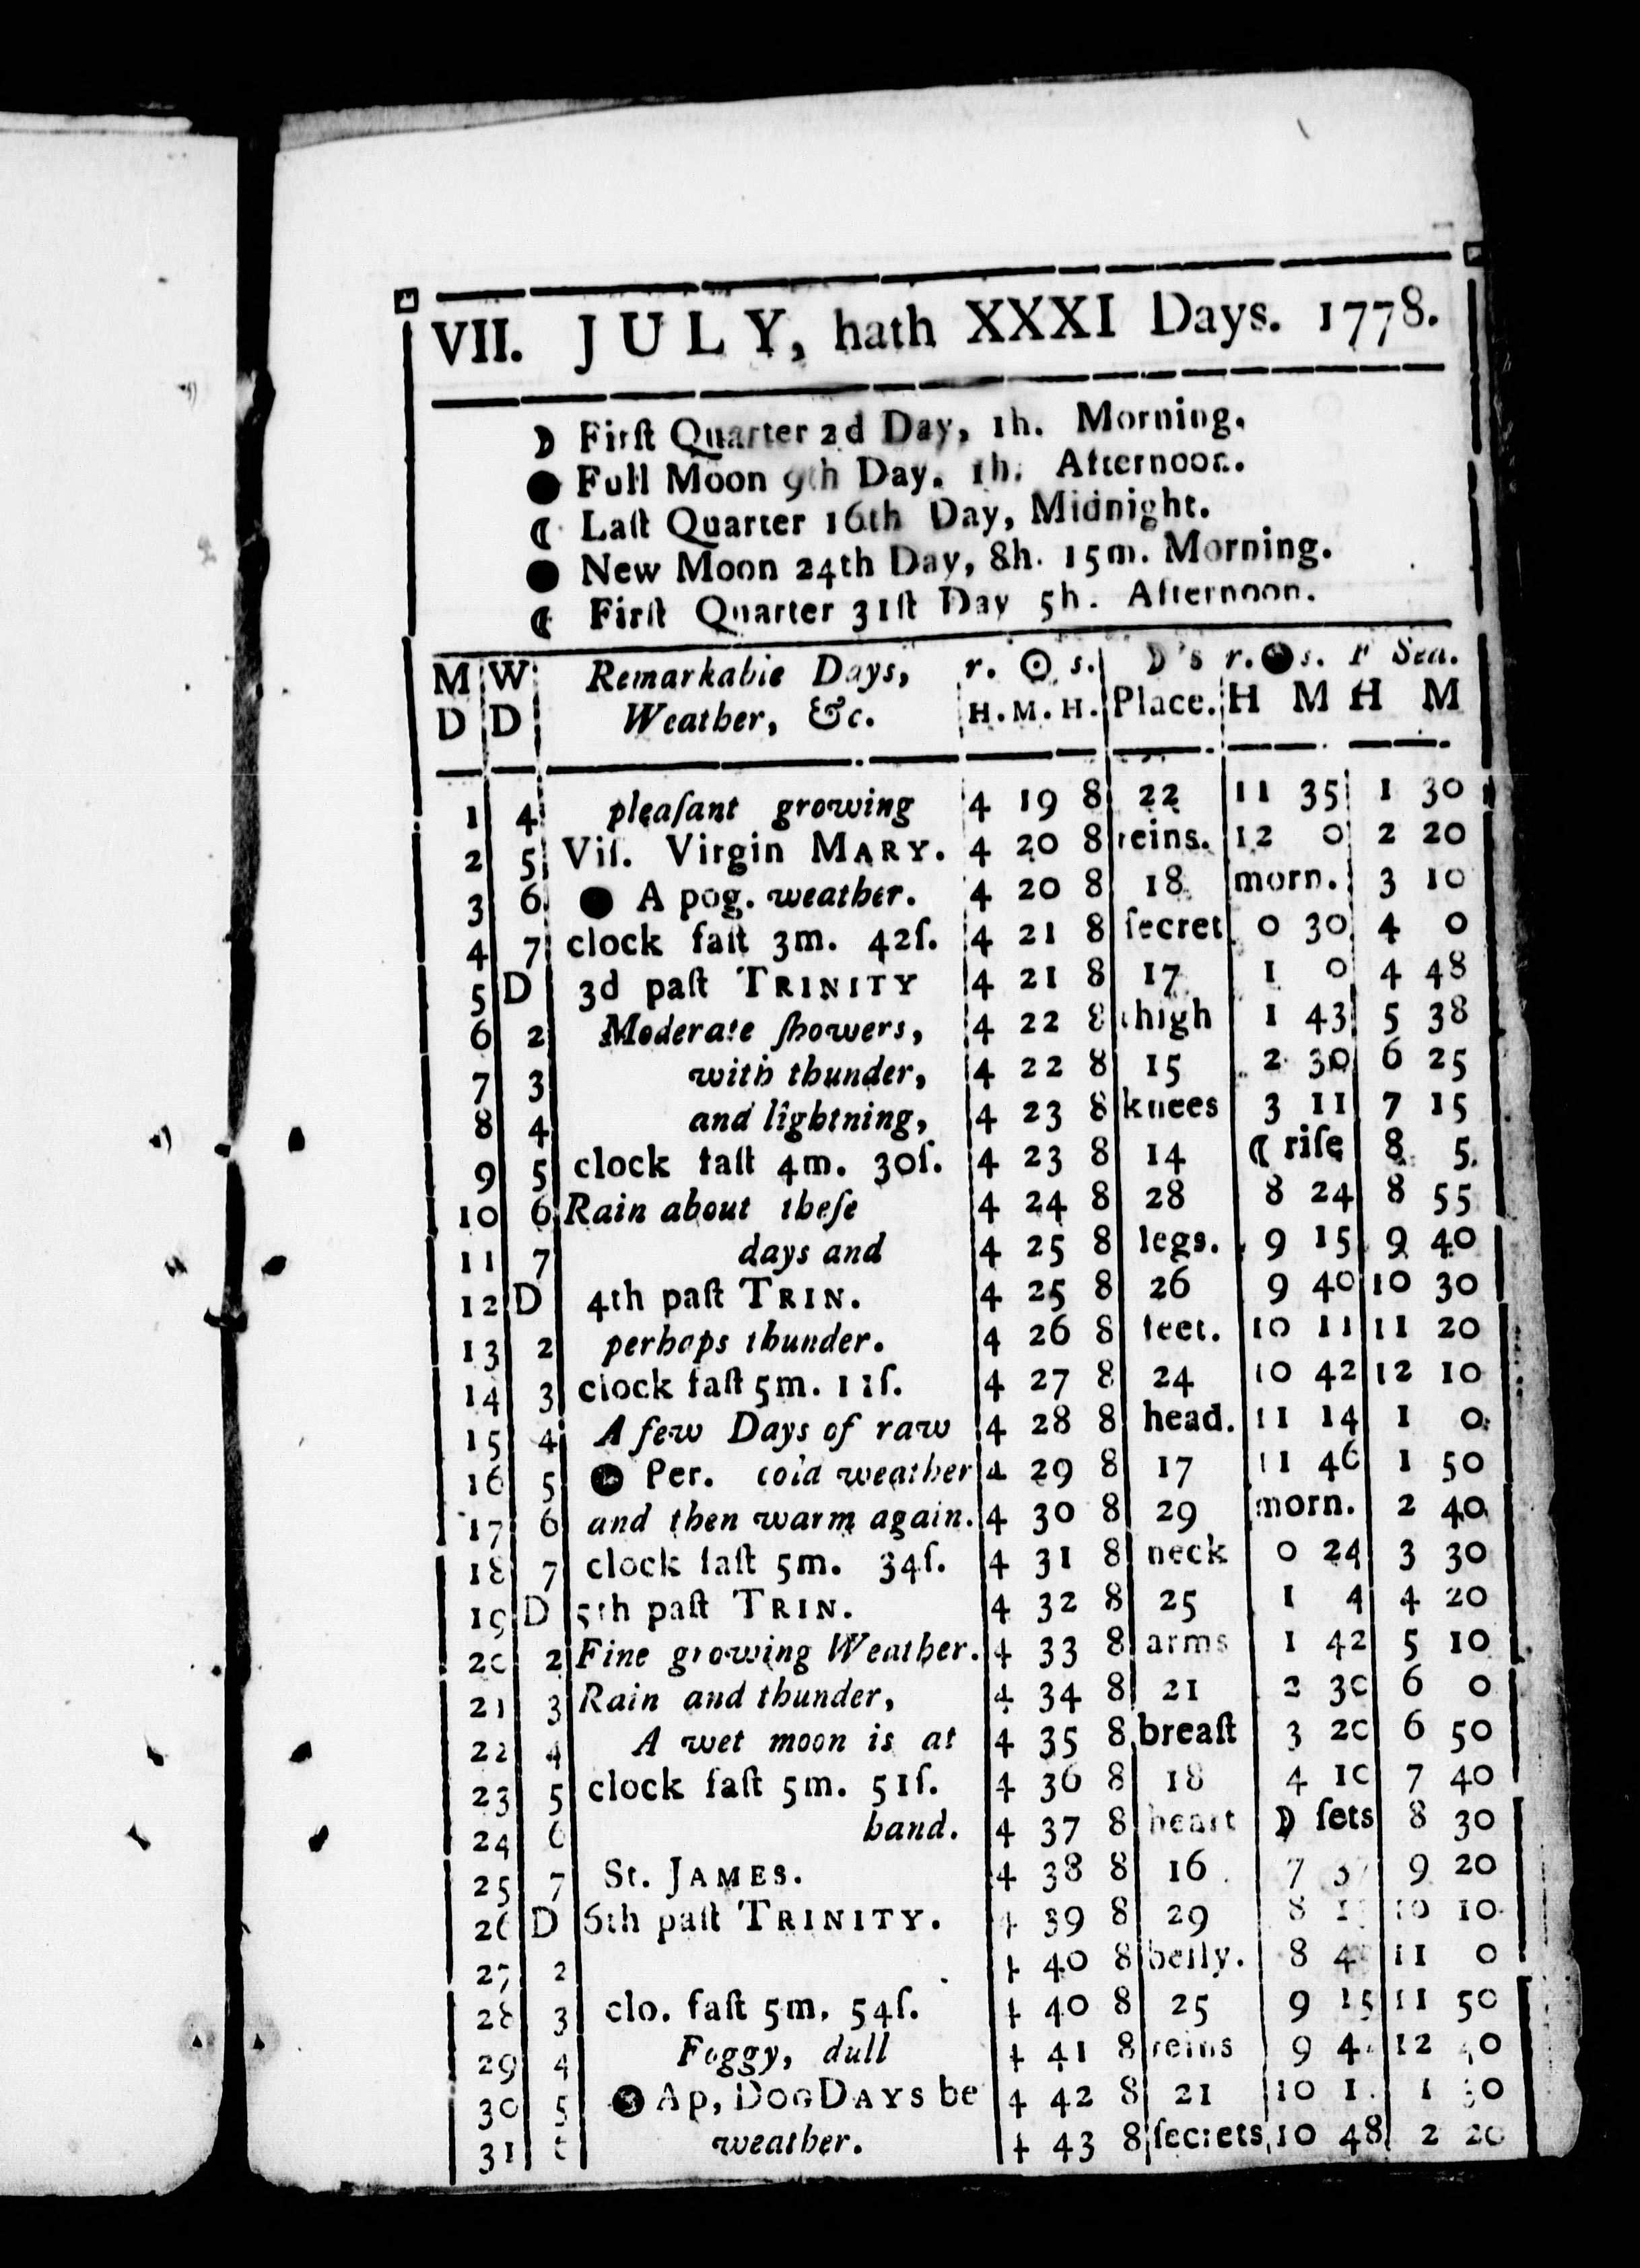 VII. JULY, hath XXXI Days. 1778.
☽ Firſt Quarter 2d Day, 1h. Morning.
● Full Moon 9th Day, 1h. Afternoon.
☾ Laſt Quarter 16th Day, Midnight.
● New Moon 24th Day, 8h. 15m. Morning.
☾ Firſt Quarter 31ſt Day 5h. Afternoon.
M W Remarkable Days, r. ☉ s. ☽'s r. ● s. F Sea.
D D Weather, &c. H. M. H. Place. H M H M
1 4 pleaſant growing 4 19 8 22 11 35 1 30
2 5 Viſ. Virgin MARY. 4 20 8 reins. 12 0 2 20
3 6 ● A pog. weather. 4 20 8 18 morn. 3 10
4 7 clock faſt 3m. 42ſ. 4 21 8 ſecret 0 30 4 0
5 D 3d paſt TRINITY 4 21 8 17 1 0 4 48
6 2 Moderate ſhowers, 4 22 8 thigh 1 43 5 38
7 3 with thunder, 4 22 8 15 2 30 6 25
8 4 and lightning, 4 23 8 knees 3 11 7 15
9 5 clock faſt 4m. 30ſ. 4 23 8 14 ☾ riſe 8 5
10 6 Rain about theſe 4 24 8 28 8 24 8 55
11 7 days and 4 25 8 legs. 9 15 9 40
12 D 4th paſt TRIN. 4 25 8 26 9 40 10 30
13 2 perhaps thunder. 4 26 8 feet. 10 11 11 20
14 3 clock faſt 5m. 11ſ. 4 27 8 24 10 42 12 10
15 4 A few Days of raw 4 28 8 head. 11 14 1 0
16 5 ● Per. cold weather 4 29 8 17 11 46 1 50
17 6 and then warm again. 4 30 8 29 morn. 2 40
18 7 clock faſt 5m. 34ſ. 4 31 8 neck 0 24 3 30
19 D 5th paſt TRIN. 4 32 8 25 1 4 4 20
20 2 Fine growing Weather. 4 33 8 arms 1 42 5 10
21 3 Rain and thunder, 4 34 8 21 2 30 6 0
22 4 A wet moon is at 4 35 8 breaſt 3 20 6 50
23 5 clock faſt 5m. 51ſ. 4 36 8 18 4 10 7 40
24 6 hand. 4 37 8 heart ☽ ſets 8 30
25 7 St. JAMES. 4 38 8 16 7 9 20
26 D 6th paſt TRINITY. 4 39 8 29 8 10 10
27 2 4 40 8 belly. 8 11 0
28 3 clo. faſt 5m. 54ſ. 4 40 8 25 9 15 11 50
29 4 Foggy, dull 4 41 8 reins 9 12 40
30 5 ● Ap, DOG DAYS be 4 42 8 21 10 1 30
31 6 weather. 4 43 8 ſecrets 10 48 2 20